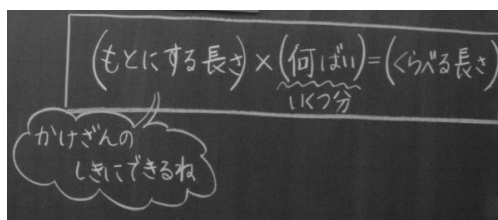 (もとにする長さ)×(何ばい)=(くらべる長さ)
いくつ分
かけざんの
しきにできるね